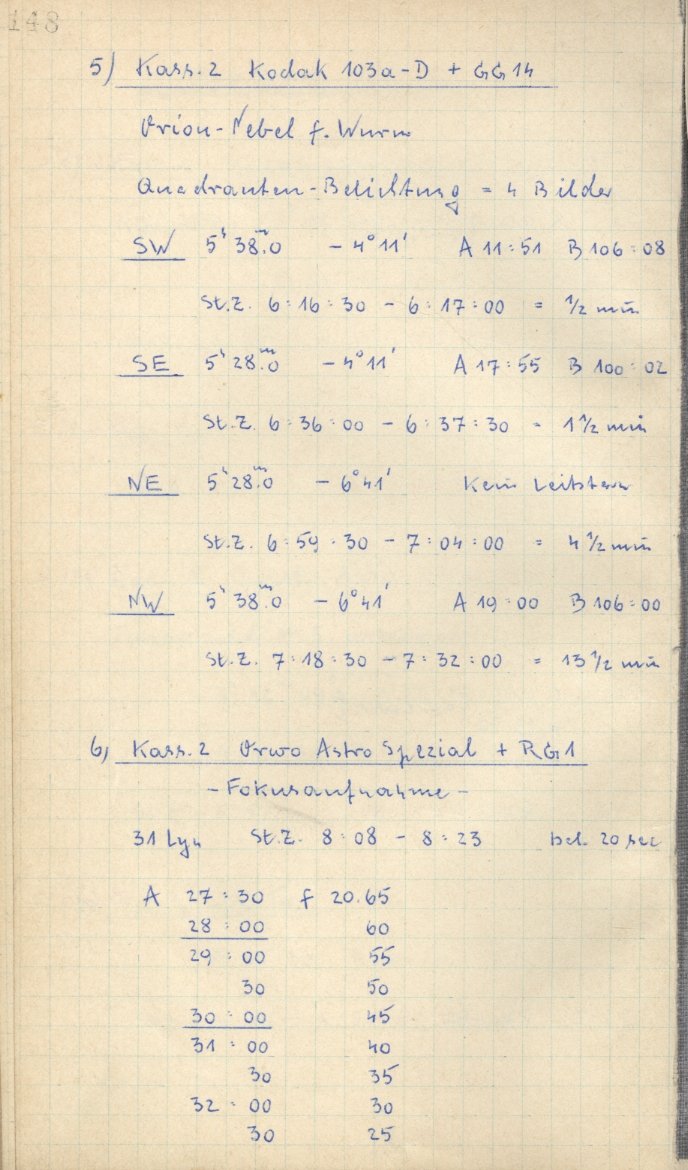 148
5) Kass. 2 Kodak 103a-D + GG14
Orion-Nebel f. Wurm
Quadranten-Belichtung = 4 Bilder
SW 5ʰ 38ᵐ.0 - 4° 11' A 11:51 B 106:08
St.Z. 6:16:30 - 6:17:00 = 1/2 min
SE 5ʰ 28ᵐ.0 - 4° 11' A 17:55 B 100:02
St.Z. 6:36:00 - 6:37:30 = 1 1/2 min
NE 5ʰ 28ᵐ.0 - 6° 41' Kein Leitstern
St.Z. 6:59:30 - 7:04:00 = 4 1/2 min
NW 5ʰ 38ᵐ.0 - 6° 41' A 19:00 B 106:00
St.Z. 7:18:30 - 7:32:00 = 13 1/2 min
6) Kass. 2 Orwo Astro Spezial + RG1
- Fokusaufnahme -
31 Lyn St.Z. 8:08 - 8:23 bel. 20 sec
A 27:30 f 20.65
28:00 60
29:00 55
30 50
30:00 45
31:00 40
30 35
32:00 30
30 25